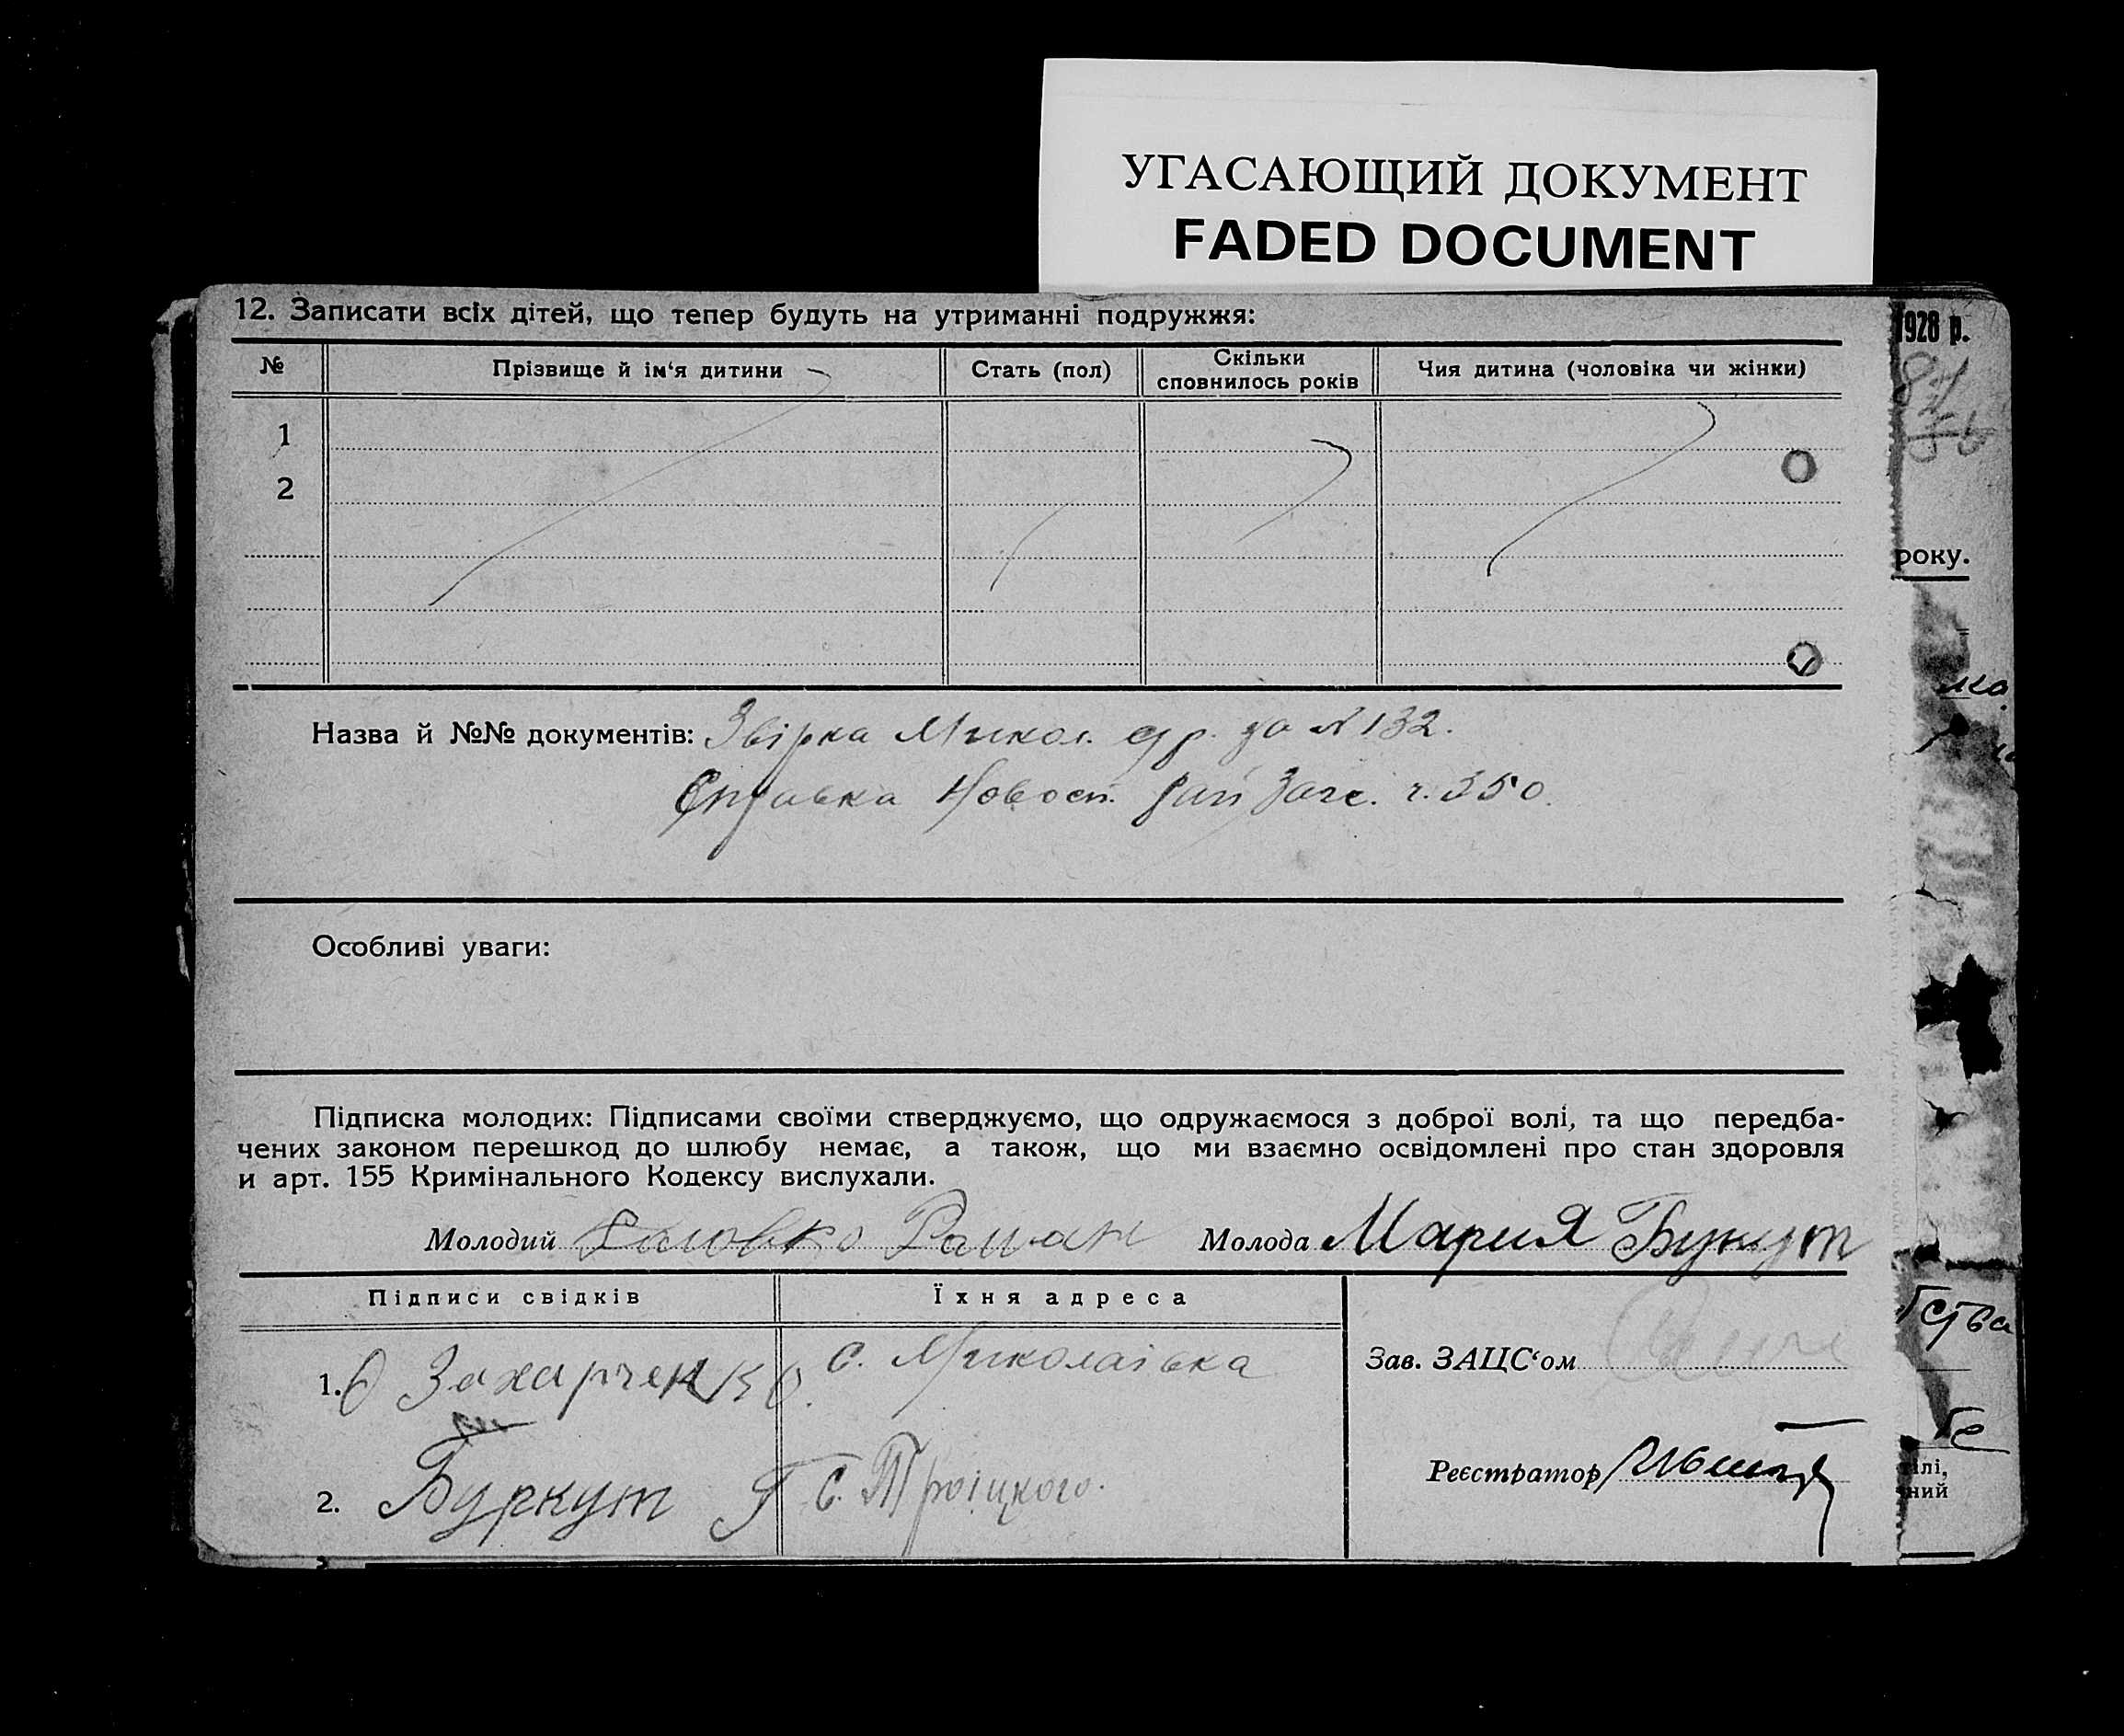 УГАСАЮЩИЙ ДОКУМЕНТ
FADED DOCUMENT
12. Записати всіх дітей, що тепер будуть на утриманні подружжя:
1928 р.
№ Прізвище й ім‘я дитини Стать (пол) Скільки сповнилось років Чия дитина (чоловіка чи жінки)
1
2
року.
Назва й №№ документів: Звірка Микол. с/р. за № 132.
Справка Новосп. Рай Загс. ч. 350.
Особливі уваги:
Підписка молодих: Підписами своїми стверджуємо, що одружаємося з доброї волі, та що передба-
чених законом перешкод до шлюбу немає, а також, що ми взаємно освідомлені про стан здоровля
и арт. 155 Кримінального Кодексу вислухали.
Молодий Роман Молода Мария
Підписи свідків Їхня адреса
1. Захарченко. с. Миколаівка
Зав. ЗАЦС‘ом
2. Буркут Г с. Троіцкого.
Реєстратор